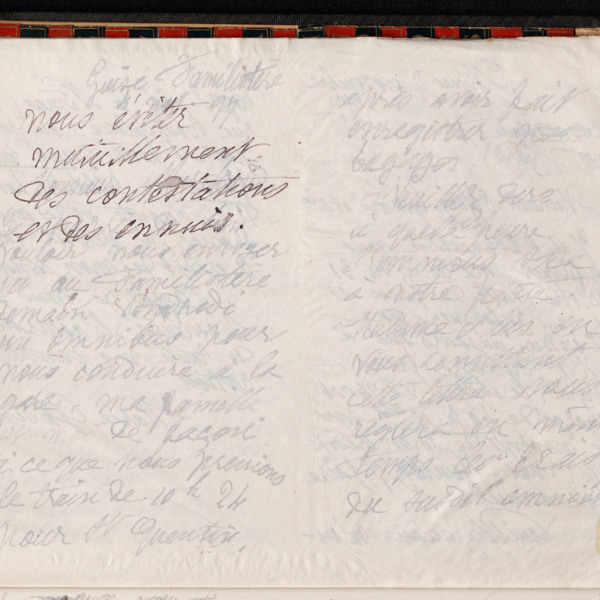 Guise Familistère
nous éviter
mutuellement
des contestations
et des ennuis.
vouloir nous envoyer
ici au Familistère
demain Vendredi
un omnibus pour
nous conduire à la
gare, ma famille
et moi de façon
à ce que nous prenions
le train de 10h 24
pour St Quentin,
après avoir fait
enregistrer nos
bagages
Veuillez dire
à quelle heure
l'omnibus sera
à notre porte
vous remettant
cette lettre vous
réglera en même
temps le
du susdit omnibus